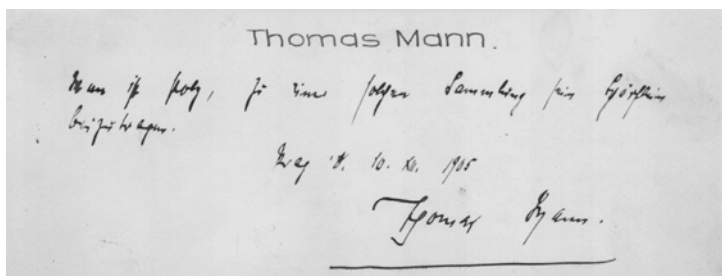 Thomas Mann.
Man ist stolz, zu einer solchen Sammlung sein Schärflein
beizutragen.
Prag d. 10. XII. 1905
Thomas Mann.